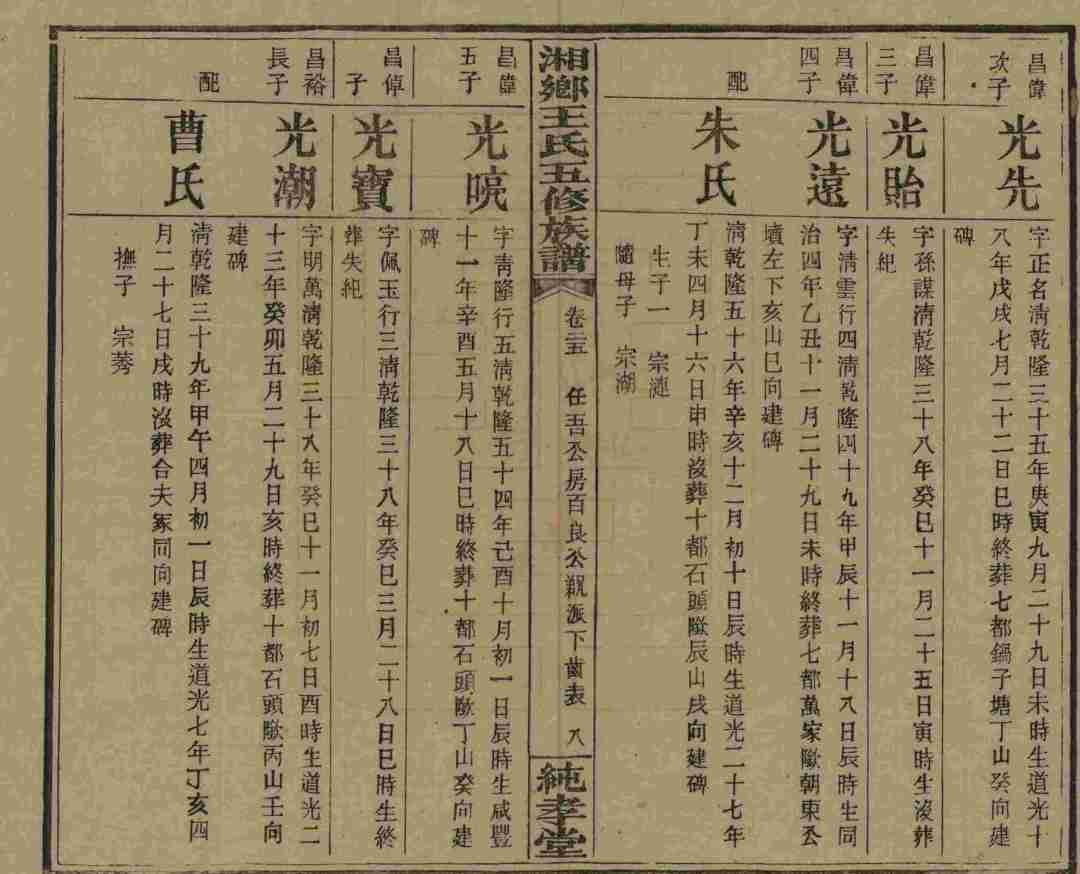 昌偉
次子
光先
字正名清乾隆三十五年庚寅九月二十九日未時生道光十
八年戊戌七月二十二日巳時終葬七都鍋子塘丁山癸向建
碑
昌偉
三子
光貽
字孫謀清乾隆三十八年癸巳十一月二十五日寅時生沒葬
失紀
昌偉
四子
光遠
字清雲行四清乾隆四十九年甲辰十一月十八日辰時生同
治四年乙丑十一月二十九日未時終葬七都萬家歘朝東公
墳左下亥山巳向建碑
配
朱氏
清乾隆五十六年辛亥十二月初十日辰時生道光二十七年
丁未四月十六日申時沒葬十都石頭歘辰山戌向建碑
生子一 宗漣
隨母子 宗湖
湘鄉王氏五修族譜
卷二十五 任吾公房百良公派下齒表 八
純孝堂
昌偉
五子
光喨
字青隆行五清乾隆五十四年己酉十月初一日辰時生咸豐
十一年辛酉五月十八日巳時終葬十都石頭歘丁山癸向建
碑
昌倬
子
光寶
字佩玉行三清乾隆三十八年癸巳三月二十八日巳時生終
葬失紀
昌裕
長子
光潮
字明萬清乾隆三十八年癸巳十一月初七日酉時生道光二
十三年癸卯五月二十九日亥時終葬十都石頭歘丙山壬向
建碑
配
曹氏
清乾隆三十九年甲午四月初一日辰時生道光七年丁亥四
月二十七日戌時沒葬合夫冢同向建碑
撫子 宗莠